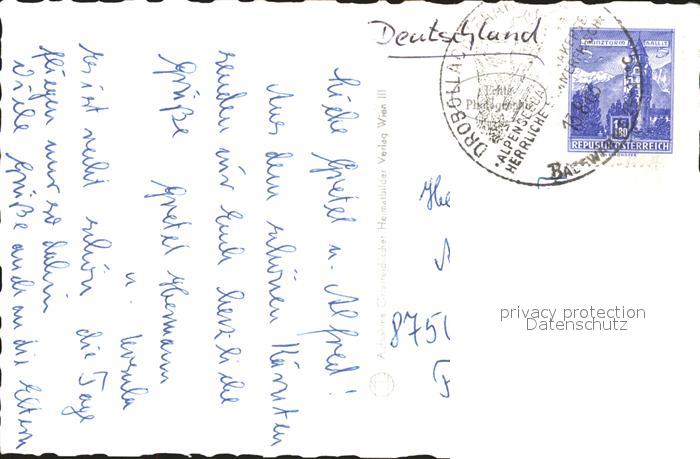 Liebe Gretel u. Alfred!
Aus dem schönen Kärnten
senden wir Euch herzliche
Grüße Gretel Hermann
u. Ursula
es ist recht schön die Tage
fliegen nur so dahin
Viele Grüße auch an die Eltern
Deutschland
Echte
Photographie
DROBOLLACH
ALPENSEEBAD
HERRLICHE
MÜNZTURM HALL I.T.
S 1.80
REPUBLIK ÖSTERREICH
Österreichischer Heimatbilder Verlag Wien III
He
875
privacy protection
Datenschutz